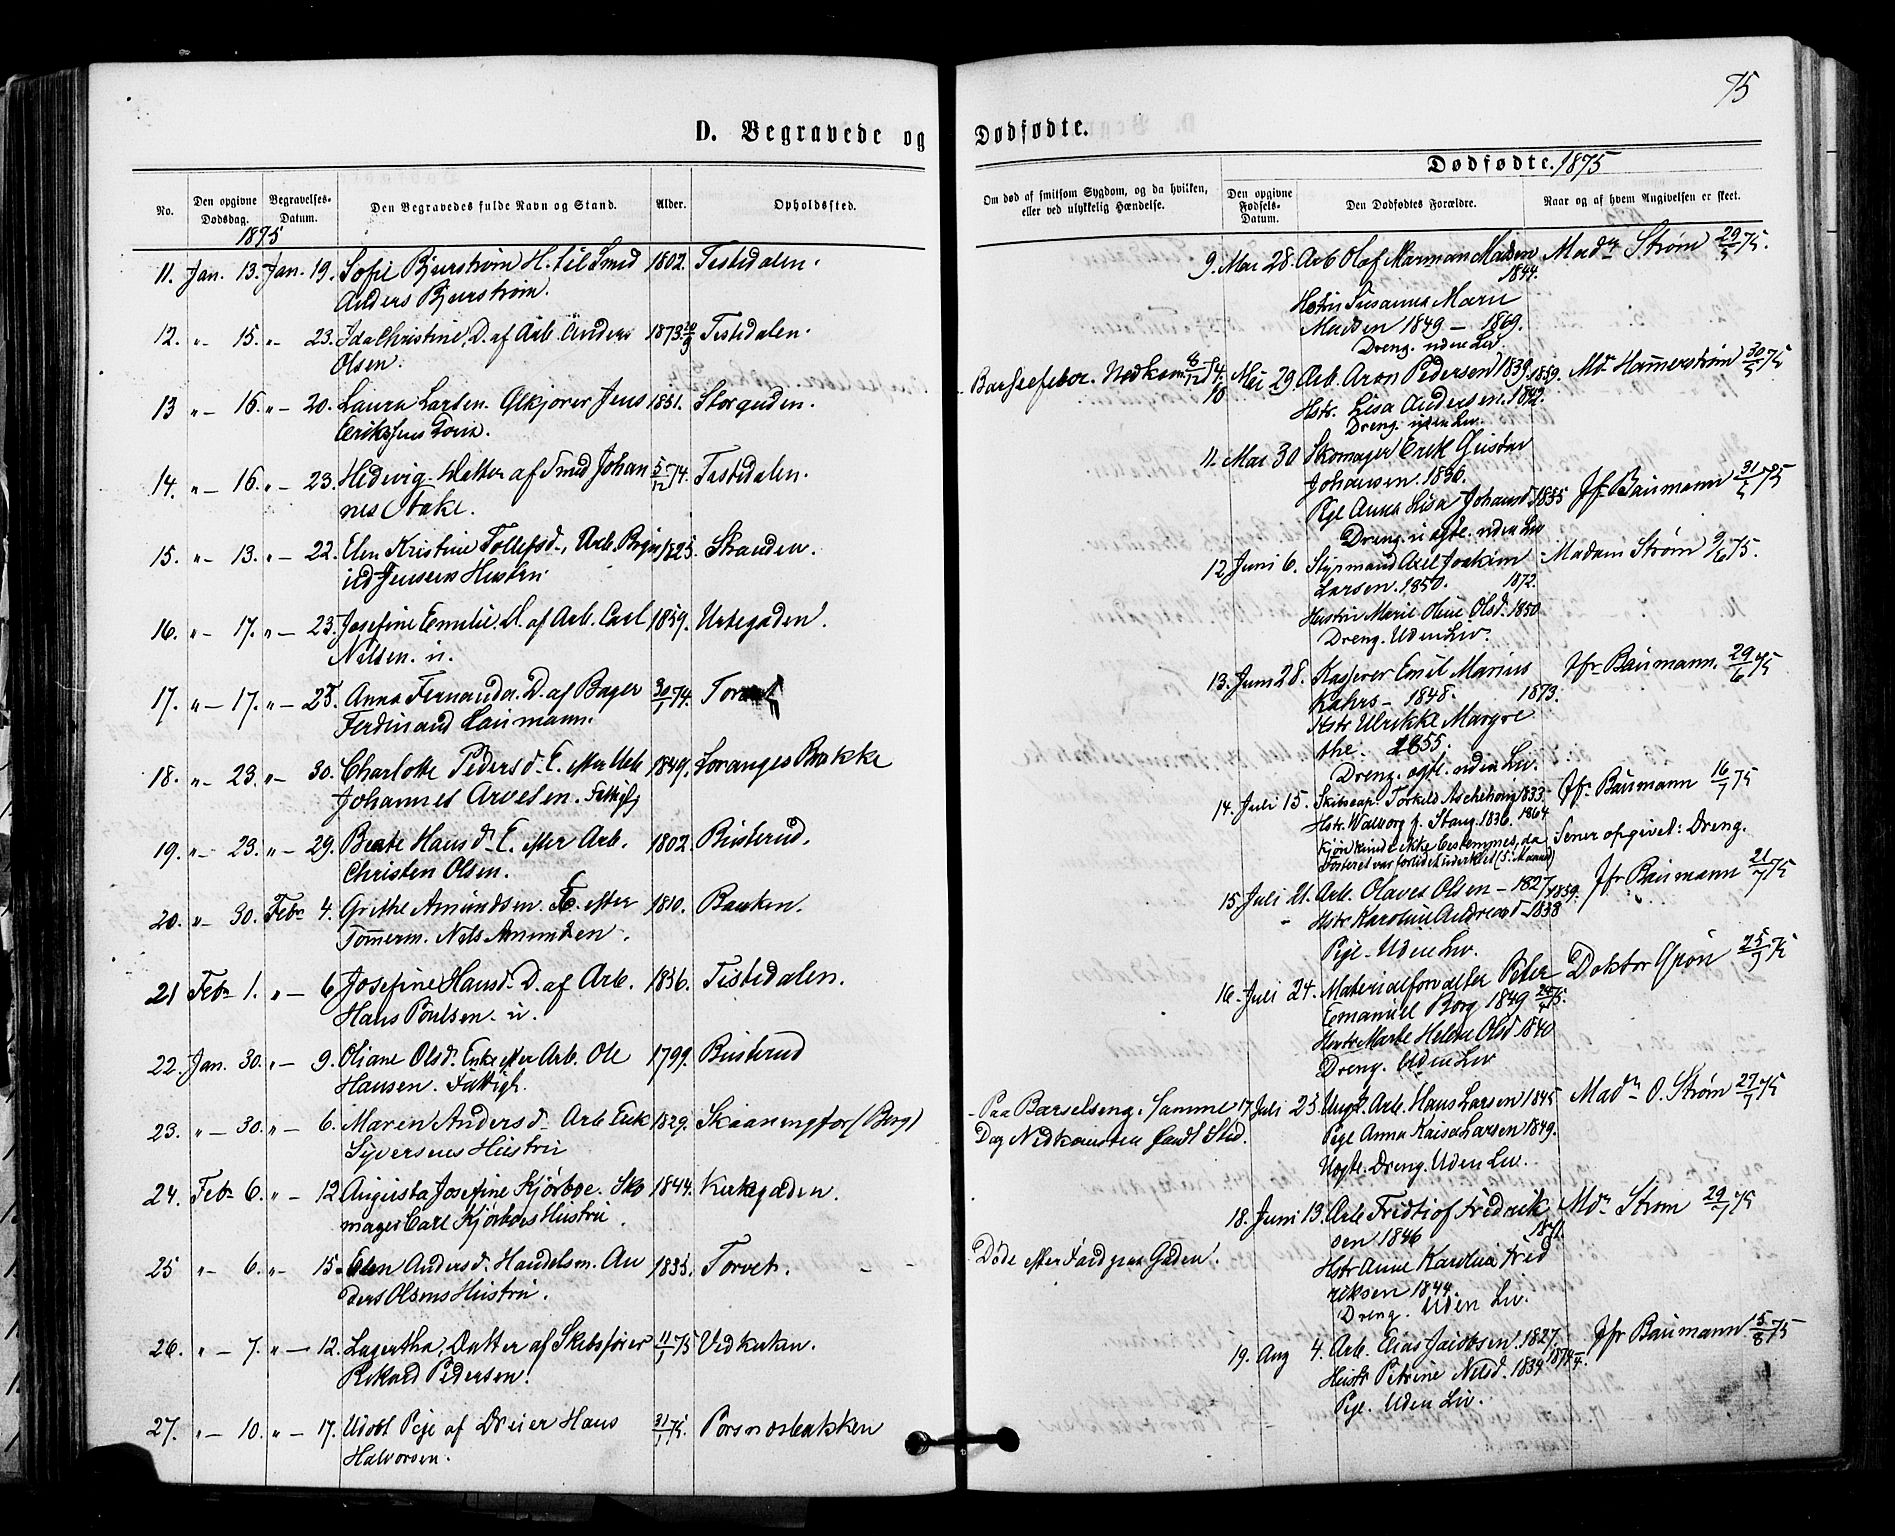 75
D. Begravede og
Dødfødte.
No.
Den opgivne Dødsdag.
Begravelses-Datum.
Den Begravedes fulde Navn og Stand.
Alder.
Opholdssted.
1875
11. Jan. 13. Jan. 19. Sofie Bjerstrøm H. til Smed 1802. Tistedalen.
Anders Bjerstrøm.
12. " 15. " 23. Ida Christine, D. af Arb. Anders 1873 Tistedalen.
Olsen.
13 " 16. " 20. Laura Larsen. Jens 1851. Storgaden.
14. " 16. " 23. Hedvig. Datter af Smed Johan 5/12 74. Tistedalen.
nes Stake.
15. " 13. " 22. Elen Kristine Tollefsd., Arb. 1825. Stranden.
Jensens Hustru
16. " 17. " 23. Josefine Emilie D. af Arb. Carl 1859. Urtegaden.
Nilsen. u.
17. " 17. " 25. Anna Fernanda. D. af Bager 30/1 74. Torvet
Ferdinand
18. " 23. " 30. Charlotte Pedersd. E. efter Arb 1849. Loranges Bakke
Johannes Arvesen. Fattigl.
19. " 23. " 29. Beate Hansd. E. efter Arb. 1802. Busterud.
Christen Olsen.
20. " 30. Febr 4. Grethe Amundsen. E. efter 1810. Banken.
Tømmerm. Nils Amundsen.
21 Febr 1. " 6 Josefine Hansd. D. af Arb. 1856. Tistedalen.
Hans Poulsen. u.
22. Jan. 30. " 9. Oliane Olsd. Enke efter Arb. Ole 1799. Busterud
Hansen. Fattigl.
23. " 30. " 6. Maren Andersd. Arb. Erik 1829. Skaaningfos (Berg)
Syversens Hustru
24. Febr 6. " 12. Augusta Josefine Kjørboe. Sko 1844. Kirkegaden.
mager Carl Kjørboes Hustru.
25 " 6. " 15. Elen Andersd. Handelsm. An 1835. Torvet.
ders Olsens Hustru.
26. " 7. " 12. Lagertha, Datter af Skibsfører 11/1 75 Vedkirken.
Rikard Pedersen.
27. " 10. " 17. Udøbt Pige af Dreier Hans 31/1 75. Porsnesbakken
Halvorsen.
Om død af smitsom Sygdom, og da hvilken, eller ved ulykkelig Hændelse.
Barselfeber. Nedkom 8/12 74
Paa Barselseng. Samme
Dag Nedkommen
Døde efter Fard paa Gaden.
Dødfødte. 1875
Den opgivne Fødsels-Datum.
Den Dødfødtes Forældre.
Naar og af hvem Angivelsen er skeet.
9. Mai 28. Arb Olaf Madsen Madm Strøm 29/5 75.
1844.
Hstru Susanne Marie
Madsen 1849 — 1869.
Dreng. uden Liv.
10 Mai 29 Arb. Aron Pedersen 1839. 1859. Md. Hammerstrøm 30/5 75
Hstr. Lisa Andersen. 1842.
Dreng uden Liv.
11. Mai 30 Skomager Erik Gustav
Johansen. 1836.
Pge Anna Lisa Johansd. 1835 Jfr. Baumann 31/5 75
Dreng. u ægte. uden Liv
12 Juni 6. Styrmand Axel Joakim Madam Strøm 9/6 75.
Larsen. 1850. 1872.
Hustru Marie Oline Olsd. 1850
Dreng. Uden Liv.
13. Juni 28. Kasserer Emil Marius Jfr Baumann. 29/6 75
Kahrs — 1848. 1873.
Hstr Ulrikke Margre
the. 1855.
Dreng. ægte. uden Liv.
14. Juli 15. Skibscap. Torkild Aschehoug 1833. Jfr. Baumann 16/7 75
Hstr. Walborg f. Stang. 1836. 1864
Kjøn kunde ikke bestemmes, da Senere opgivet: Dreng.
Fosteret var for lidet udviklet (5. Maaned)
15. Juli 21. Arb. Olaves Olsen — 1827. 1859. Jfr Baumann 21/7 75
Hstr Karoline Andreasd. 1838
Pige. Uden Liv.
16. Juli 24. Materialforvalter Peter Doktor Grøn 25/7 75
Emanuel Borg 1849
Hustr Marte Helene Olsd. 1840
Dreng. Uden Liv
17 Juli 25. Ungk. Arb. Hans Larsen 1845 Madm O. Strøm 27/7 75
Pige Anna Kaisa Larsen 1849.
Uægte. Dreng. Uden Liv.
18. Juni 13. Arb Fredtiof Fredrik Mdm Strøm 29/7 75
sen 1846 1871.
Hstr Anne Karolina Fred
riksen 1844.
Dreng. Uden Liv.
19. Aug 4. Arb. Elias Jacobsen. 1827. Jfr Baumann 5/8 75
Hustr Petrine Nilsd. 1839
Pige. Uden Liv.